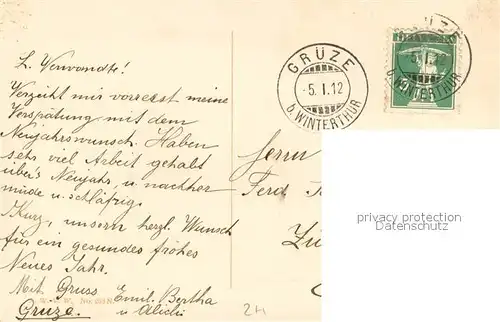 L. Verwandte!
Verzeiht mir vorerst meine
Verspätung mit dem
Neujahrswunsch. Haben
sehr viel Arbeit gehabt
über's Neujahr, u. nachher
müde u. schläfrig.
Kurz, unsern herzl. Wunsch
für ein gesundes frohes
Neues Jahr.
Mit Gruss Emil. Bertha
Grüze. u
GRÜZE
-5.I.12
b. WINTERTHUR
GRÜZE
-5.I.12
b. WINTERTHUR
Herrn
Ferd
privacy protection
Datenschutz
24